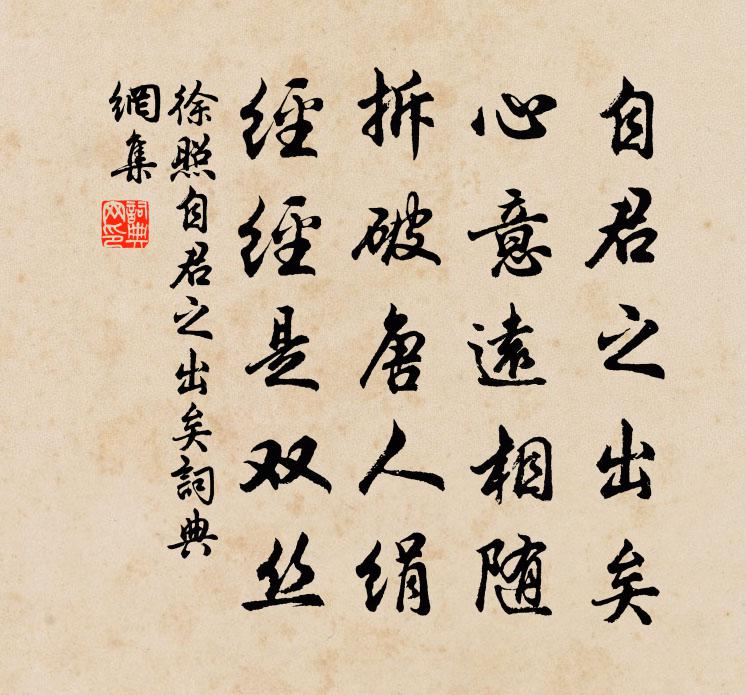 自君之出矣
心意遠相随
拆破唐人绢
經經是双丝
徐照自君之出矣詞典
網集
詞典网印